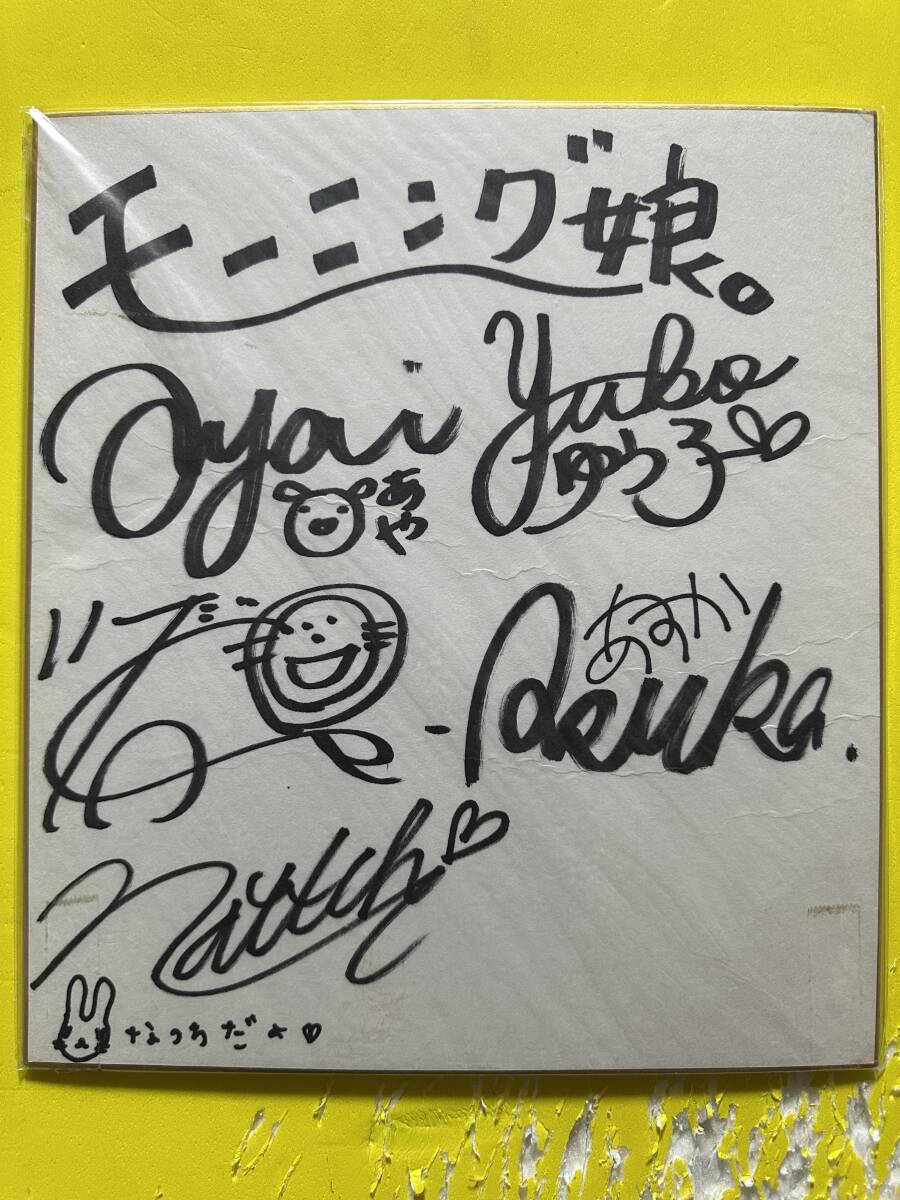 モーニング娘。
Ayai
あや
Yuko
ゆう子
あすか
Asuka.
Nattch
なっちだよ